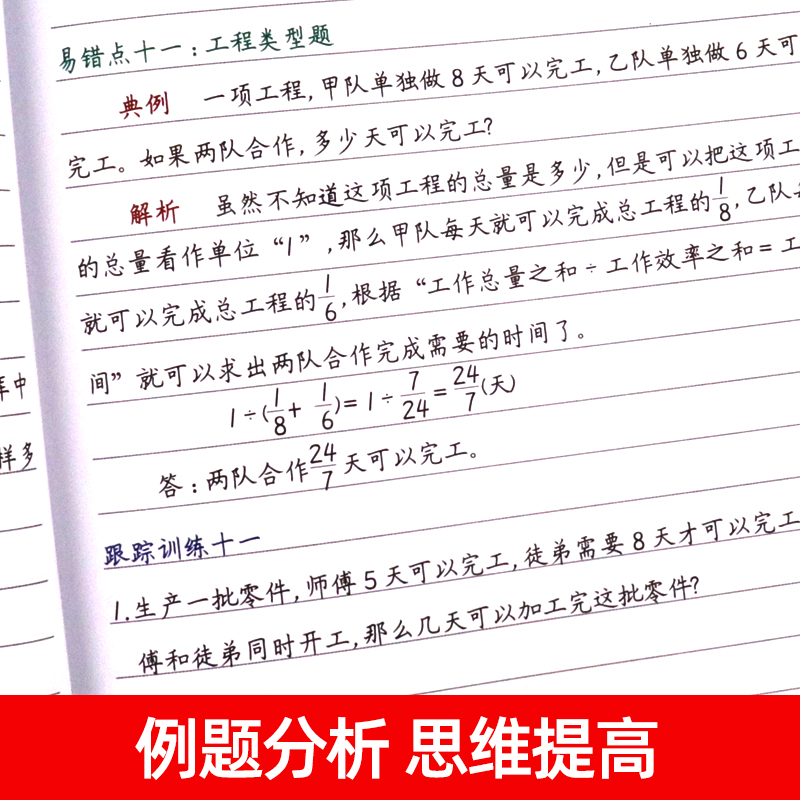 易错点十一:工程类型题
典例 一项工程,甲队单独做8天可以完工,乙队单独做6天可
完工。如果两队合作,多少天可以完工?
解析 虽然不知道这项工程的总量是多少,但是可以把这项工
的总量看作单位“1”,那么甲队每天就可以完成总工程的1/8,乙队每
就可以完成总工程的1/6,根据“工作总量之和÷工作效率之和=工
间”就可以求出两队合作完成需要的时间了。
1÷(1/8+1/6)=1÷7/24=24/7(天)
答:两队合作24/7天可以完工。
跟踪训练十一
1.生产一批零件,师傅5天可以完工,徒弟需要8天才可以完工
傅和徒弟同时开工,那么几天可以加工完这批零件?
中
样多
例题分析 思维提高